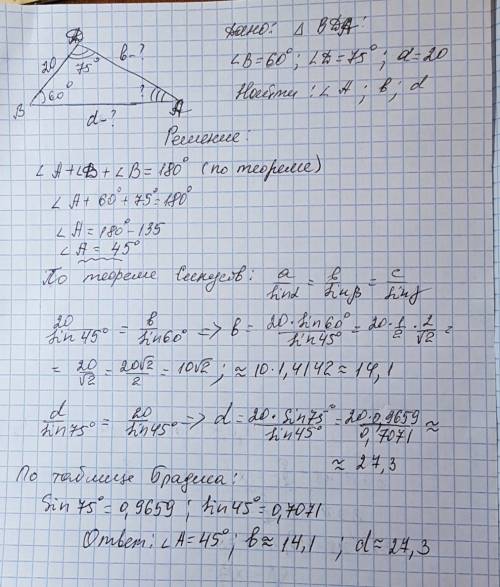 Д
20 75° b-?
B 60° ? A
d-?
Дано: △ BДA
∠B=60°; ∠D=75°; a=20
Найти: ∠A; b; d
Решение:
∠A+∠D+∠B=180° (по теореме)
∠A+60°+75°=180°
∠A=180°-135
∠A=45°
По теореме Синусов: a/sinα = b/sinβ = c/sinγ
20/sin45° = b/sin60° => b = 20·sin60°/sin45° = 20·1/2·2/√2 =
= 20/√2 = 20√2/2 = 10√2; ≈10·1,4142≈14,1
d/sin75° = 20/sin45° => d = 20·sin75°/sin45° = 20·0,9659/0,7071 ≈
≈ 27,3
По таблице Брадиса:
Sin75°=0,9659; sin45°=0,7071
Ответ: ∠A=45°; b≈14,1 ; d≈27,3